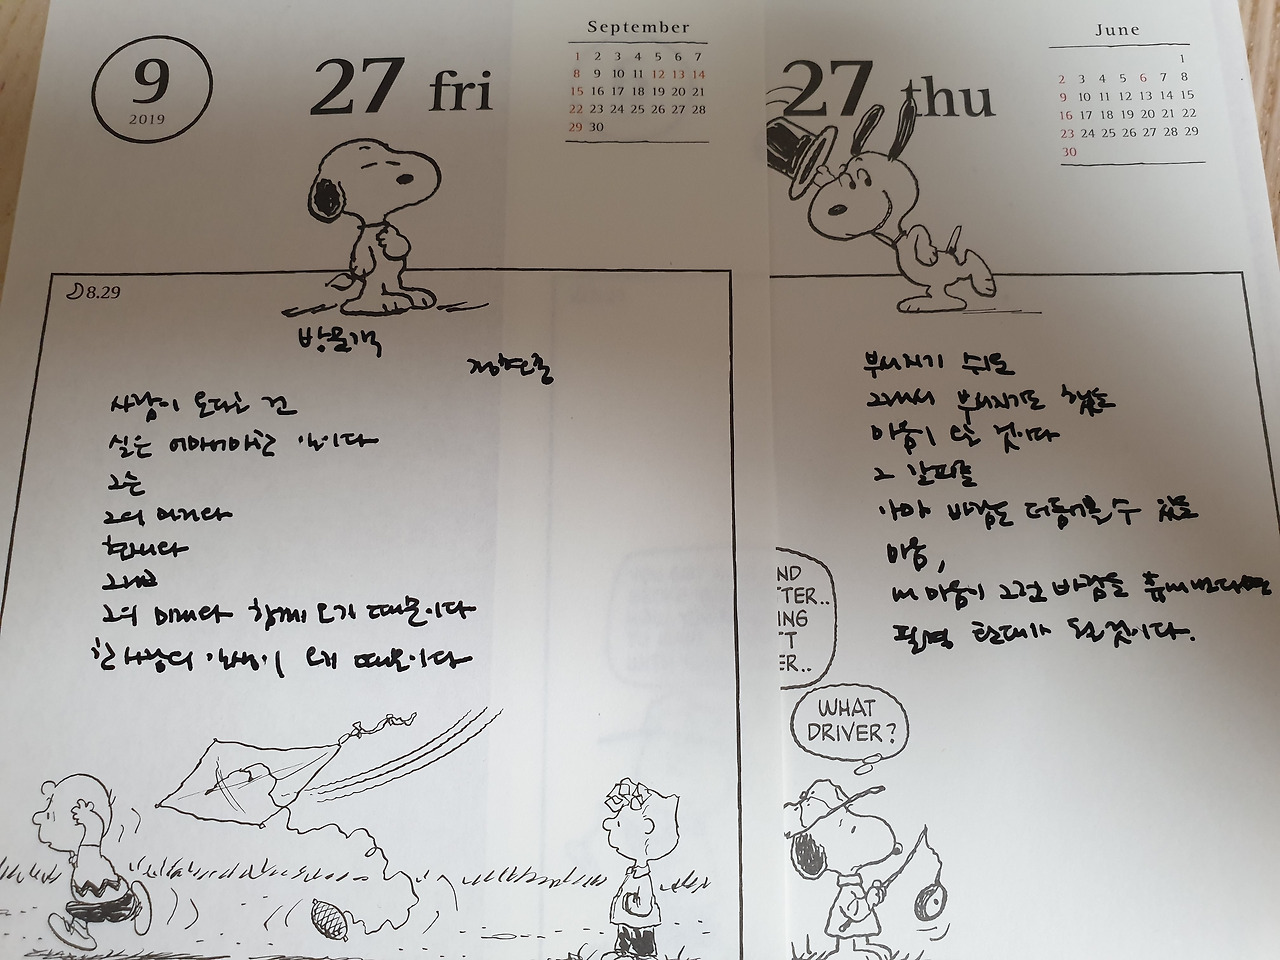 9
2019
27 fri
September
1 2 3 4 5 6 7
8 9 10 11 12 13 14
15 16 17 18 19 20 21
22 23 24 25 26 27 28
29 30
8.29
방문객
정현종
사람이 온다는 건
실은 어마어마한 일이다
그는
그의 과거와
현재와
그리고
그의 미래와 함께 오기 때문이다
한 사람의 일생이 오기 때문이다
27 thu
June
1
2 3 4 5 6 7 8
9 10 11 12 13 14 15
16 17 18 19 20 21 22
23 24 25 26 27 28 29
30
부서지기 쉬운
그래서 부서지기도 했을
마음이 오는 것이다
그 갈피를
아마 바람은 더듬어볼 수 있을
마음,
내 마음이 그런 바람을 흉내낸다면
필경 환대가 될 것이다.
ND
TER..
ING
T
ER..
WHAT
DRIVER?